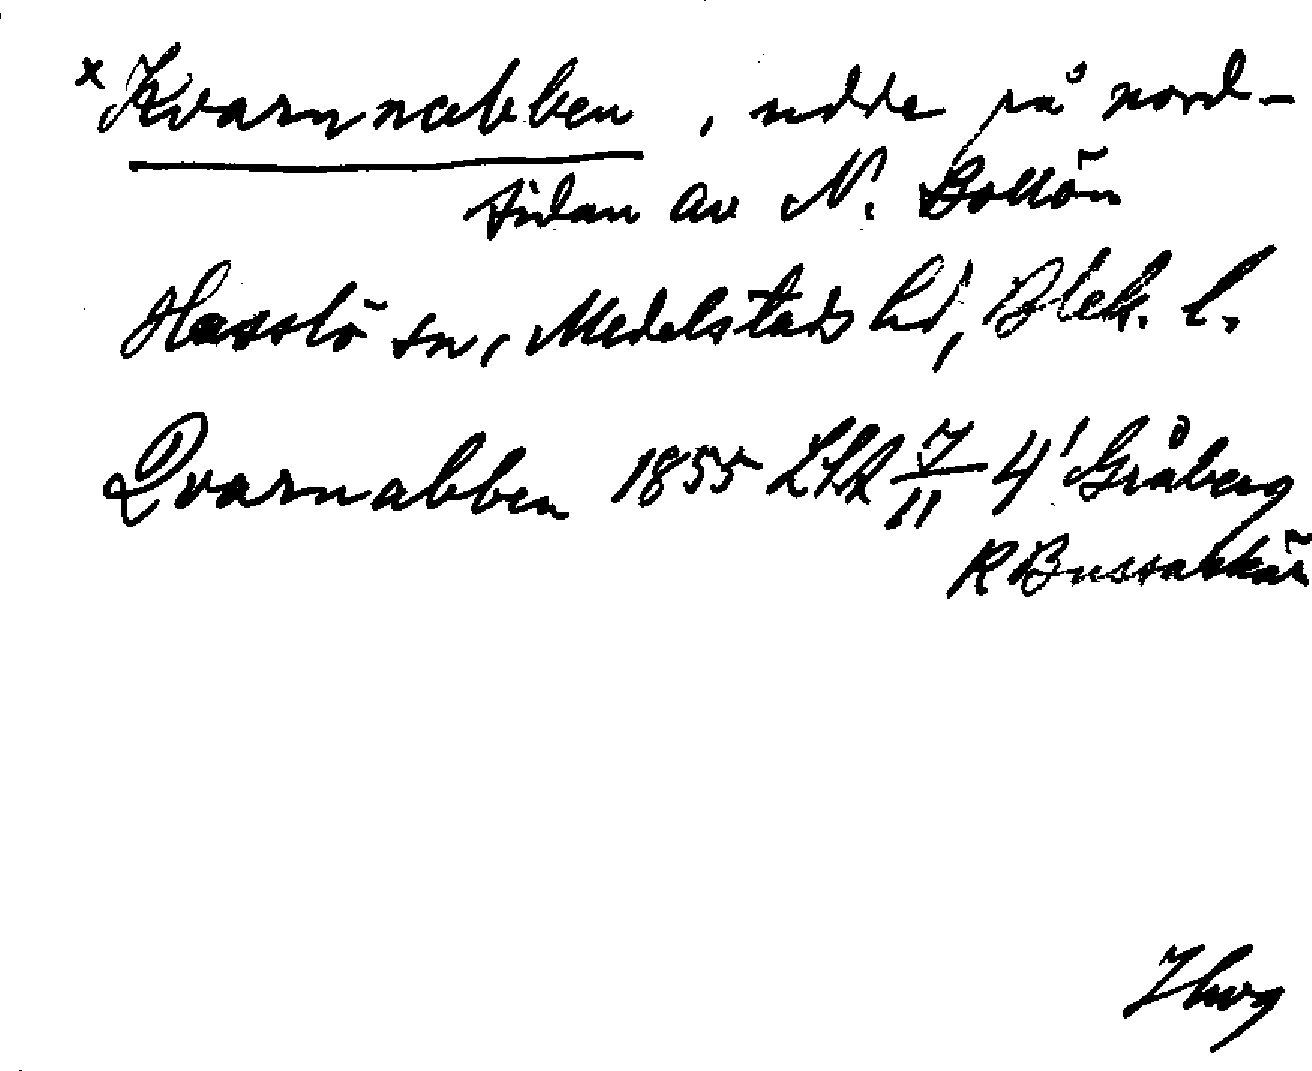 x Kvarnnabben, udde på nord-
sidan av N. Bollön
Hasslö sn, Medelstads hd, Blek. l.
Qvarnabben 1855 LSA 7/11 4' Gråberg
R Bussaskär